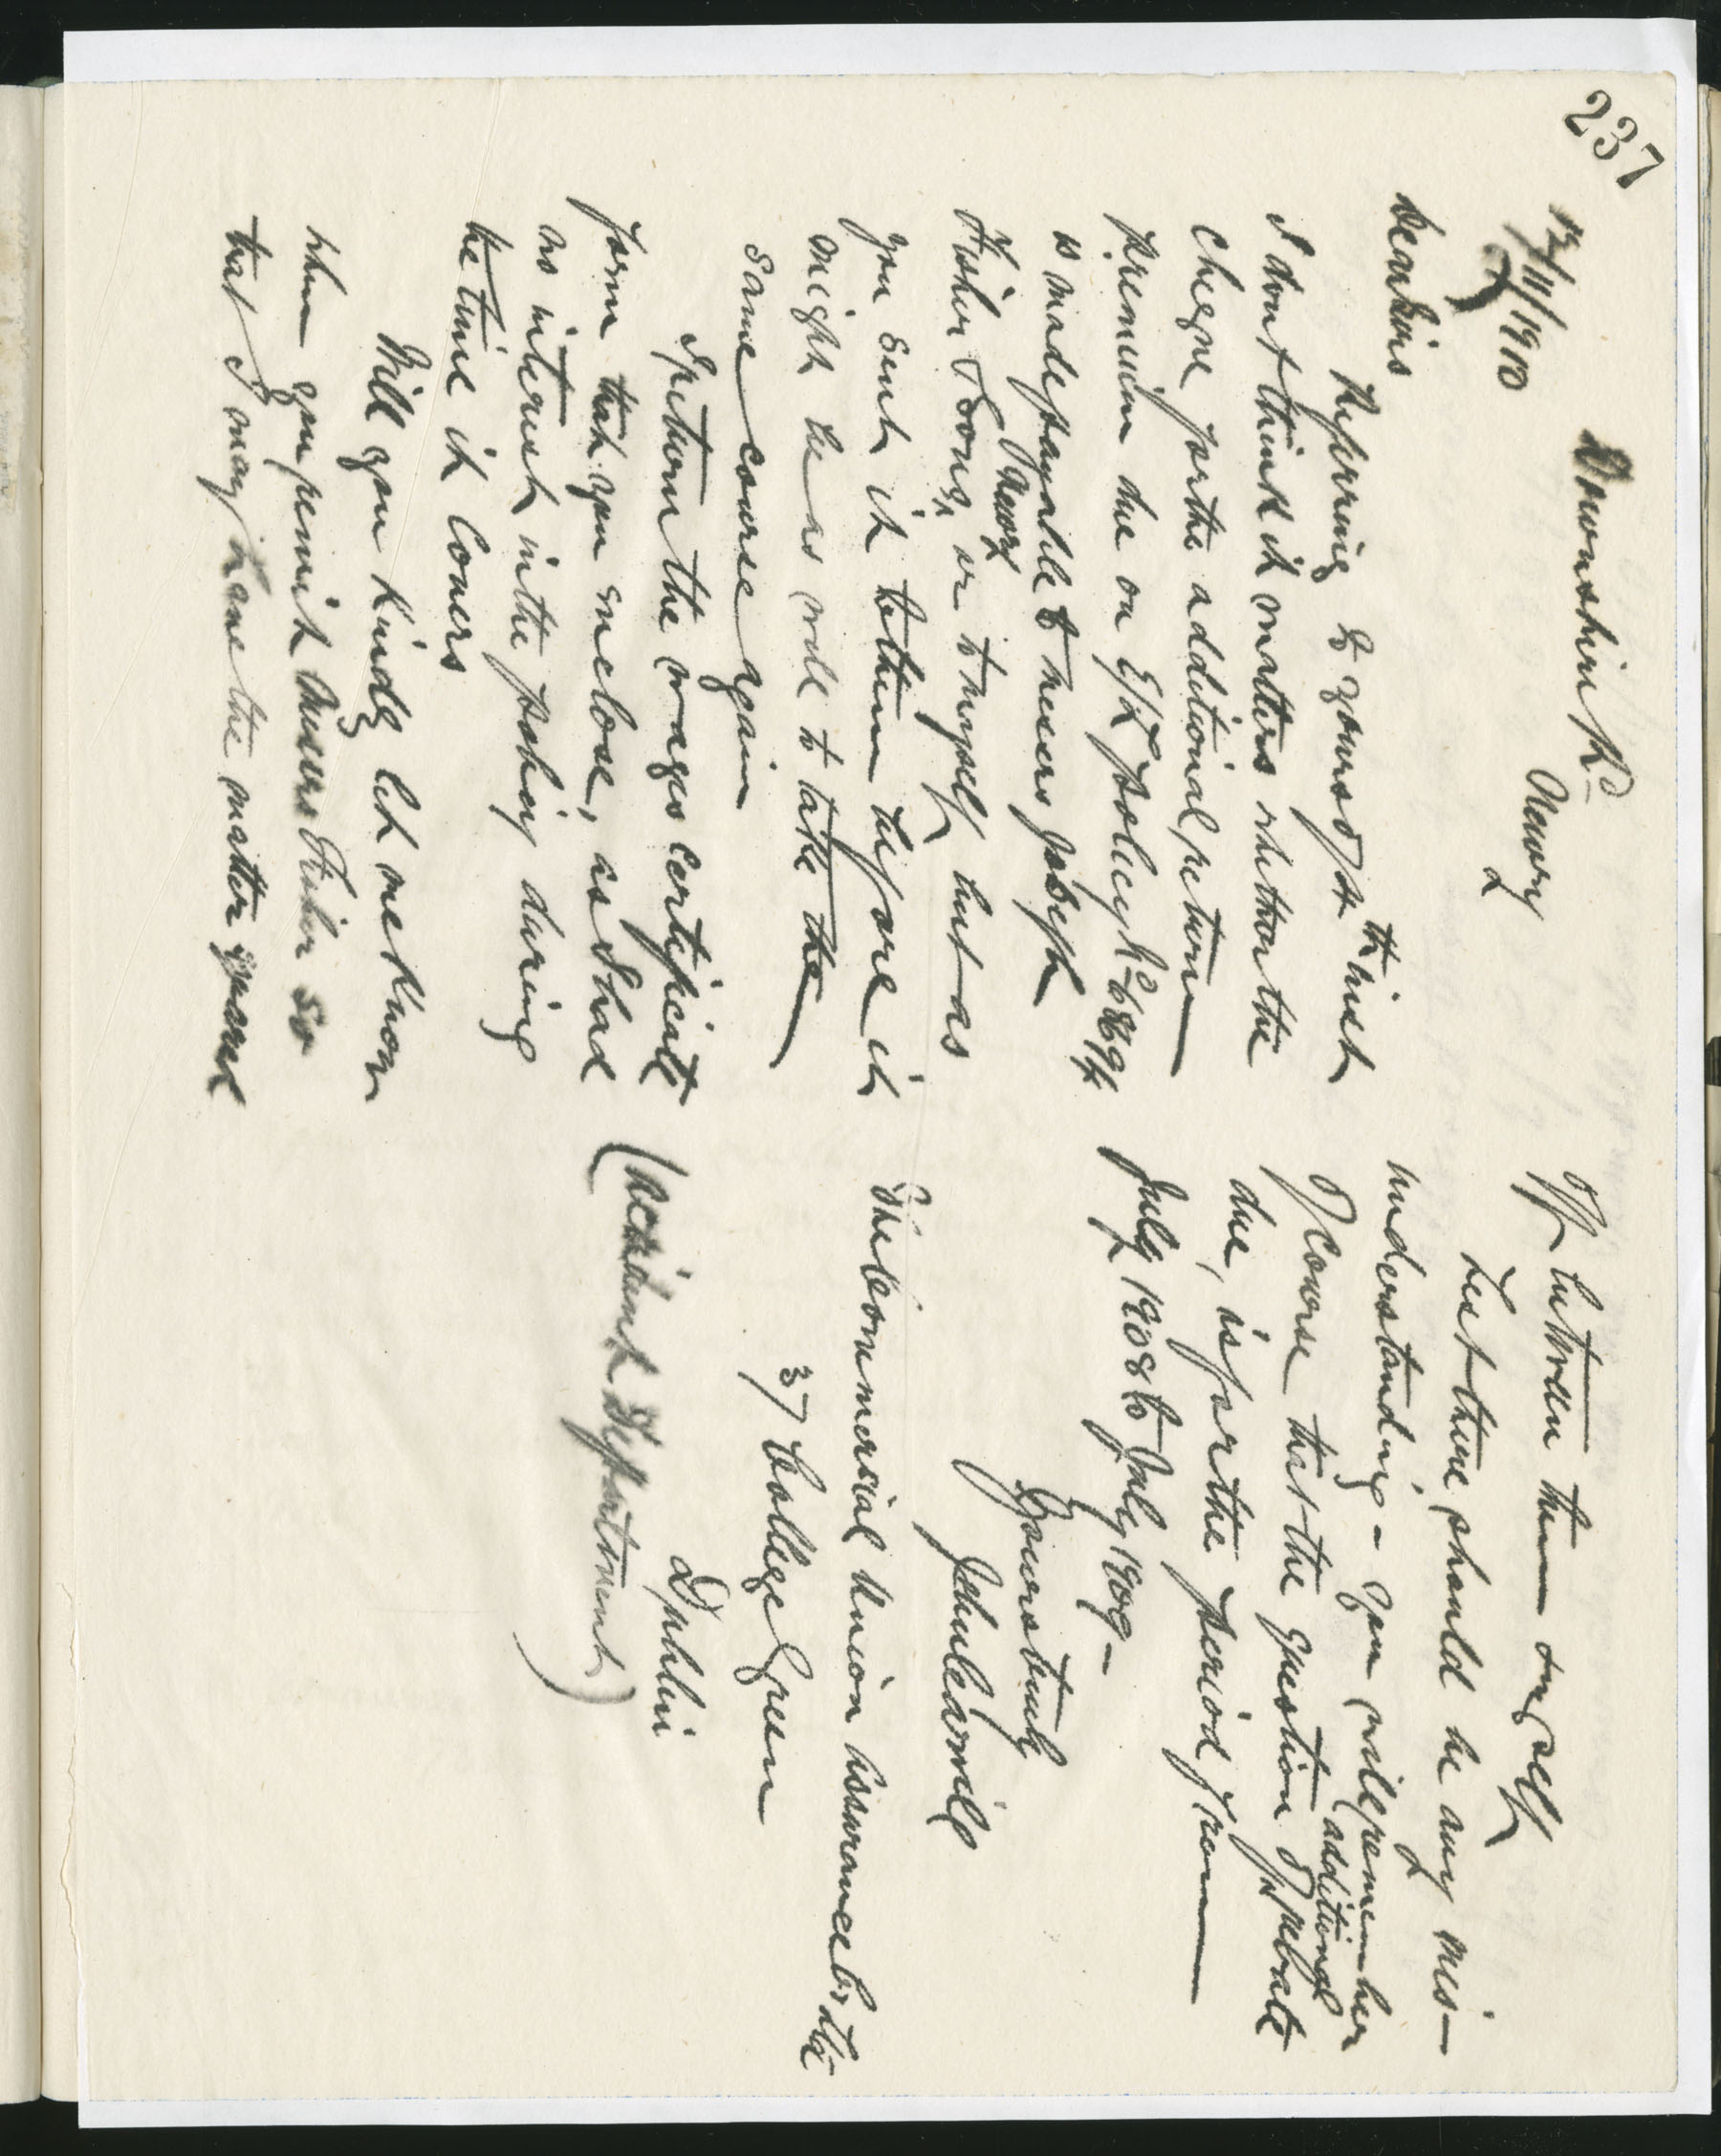 237
Downshire Rd
Newry
12/11/1910
Dear Sirs
Referring to yours of 4th inst
I dont think it matters whether the
cheque for the additional return
premium due on E/L policy No 68694
is made payable to Messrs Joseph
Fisher & Sons, Newry or to myself, but as
you sent it to them before it
might be as well to take the
same course again
I return the wages certificate
form that you enclose, as I had
no interest in the policy during
the time it covers
Will you kindly let me know
when you remit Messrs Fisher so
that I may have the matter squared
off between them & myself
Lest there should be any mis-
understanding - you will remember
of course that the question of additional rebate
due, is for the period from
July 1908 to July 1909 -
Yours truly
The Commercial Union Assurance Co Ltd
37 College Green
Dublin
(Accident Department)